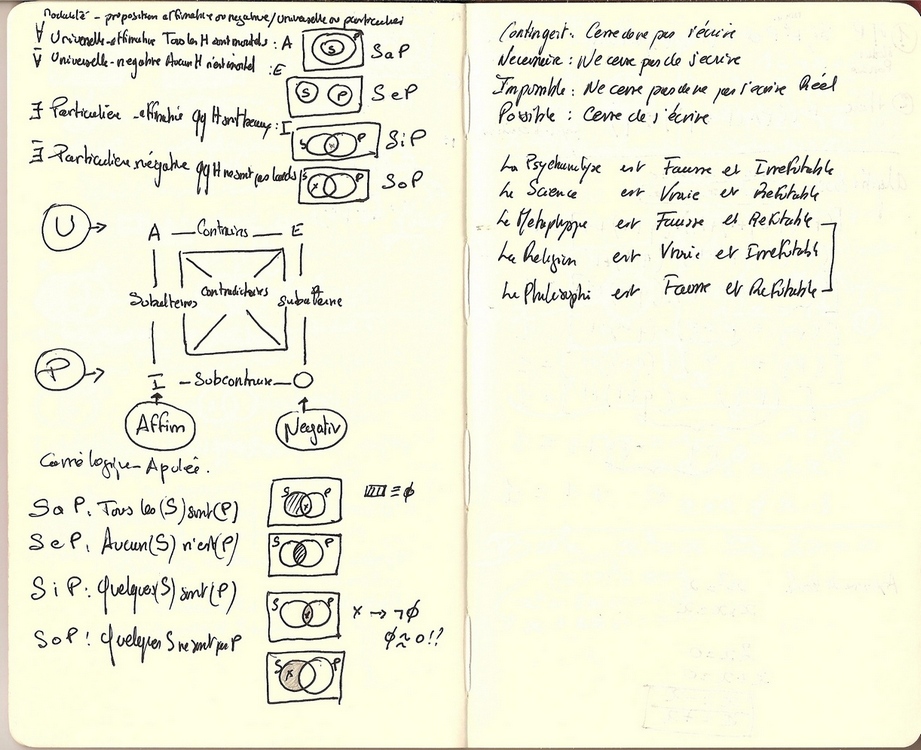 Modalité - proposition affirmative ou negative / universelle ou particulier
∀ Universelle-affirmative Tous les H sont mortels : A
SaP
S
∀̅ Universelle-negative Aucun H n'est mortel : E
S P
SeP
∃ Particuliere-affirmative qq H sont beaux : I
S P
x
SiP
∃̅ Particuliere négative qq H ne sont pas
S P
x
SoP
U →
A — Contraires — E
Subalternes Contradictoires Subalterne
P →
I - Subcontraire - O
Affirm Negativ
Carré logique - Apulée.
SaP : Tous les (S) sont (P)
S P
≡ ϕ
SeP : Aucun (S) n'est (P)
S P
SiP : Quelques (S) sont (P)
S P
x → ¬ϕ
ϕ ≈ 0!!
SoP : Quelques S ne sont pas P
S P
x
Contingent : Cesse de ne pas s'écrire
Necessaire : Ne cesse pas de s'ecrire
Impossible : Ne cesse pas de ne pas s'ecrire Réel
Possible : Cesse de s'écrire
La Psychanalyse est Fausse et Irrefutable
La Science est Vraie et Refutable
La Metaphysique est Fausse et Refutable
La Religion est Vraie et Irrefutable
La Philosophie est Fausse et Refutable